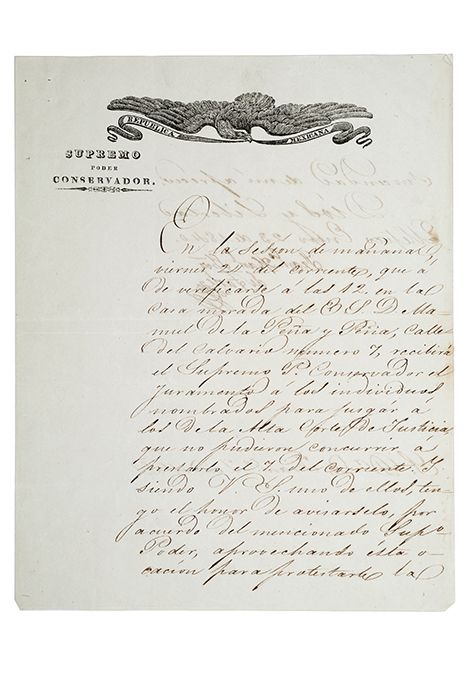 REPUBLICA MEXICANA
SUPREMO
PODER
CONSERVADOR.
En la sesion de mañana,
viernes 21 del corriente, que á
de verificarse á las 12 en la
casa morada del E. S. D. Ma-
nuel de la Peña y Peña, calle
del Calvario numero 7, recibirá
el Supremo P. Conservador el
Juramento á los individuos
nombrados para jusgar á
los de la Alta Corte de Justicia,
que no pudieron concurrir á
prestarlo el 7 del corriente. Y
siendo V. S. uno de ellos, ten-
go el honor de avisarselo, por
acuerdo del mencionado Supo.
Poder, aprovechando esta o-
cación para protestarle la